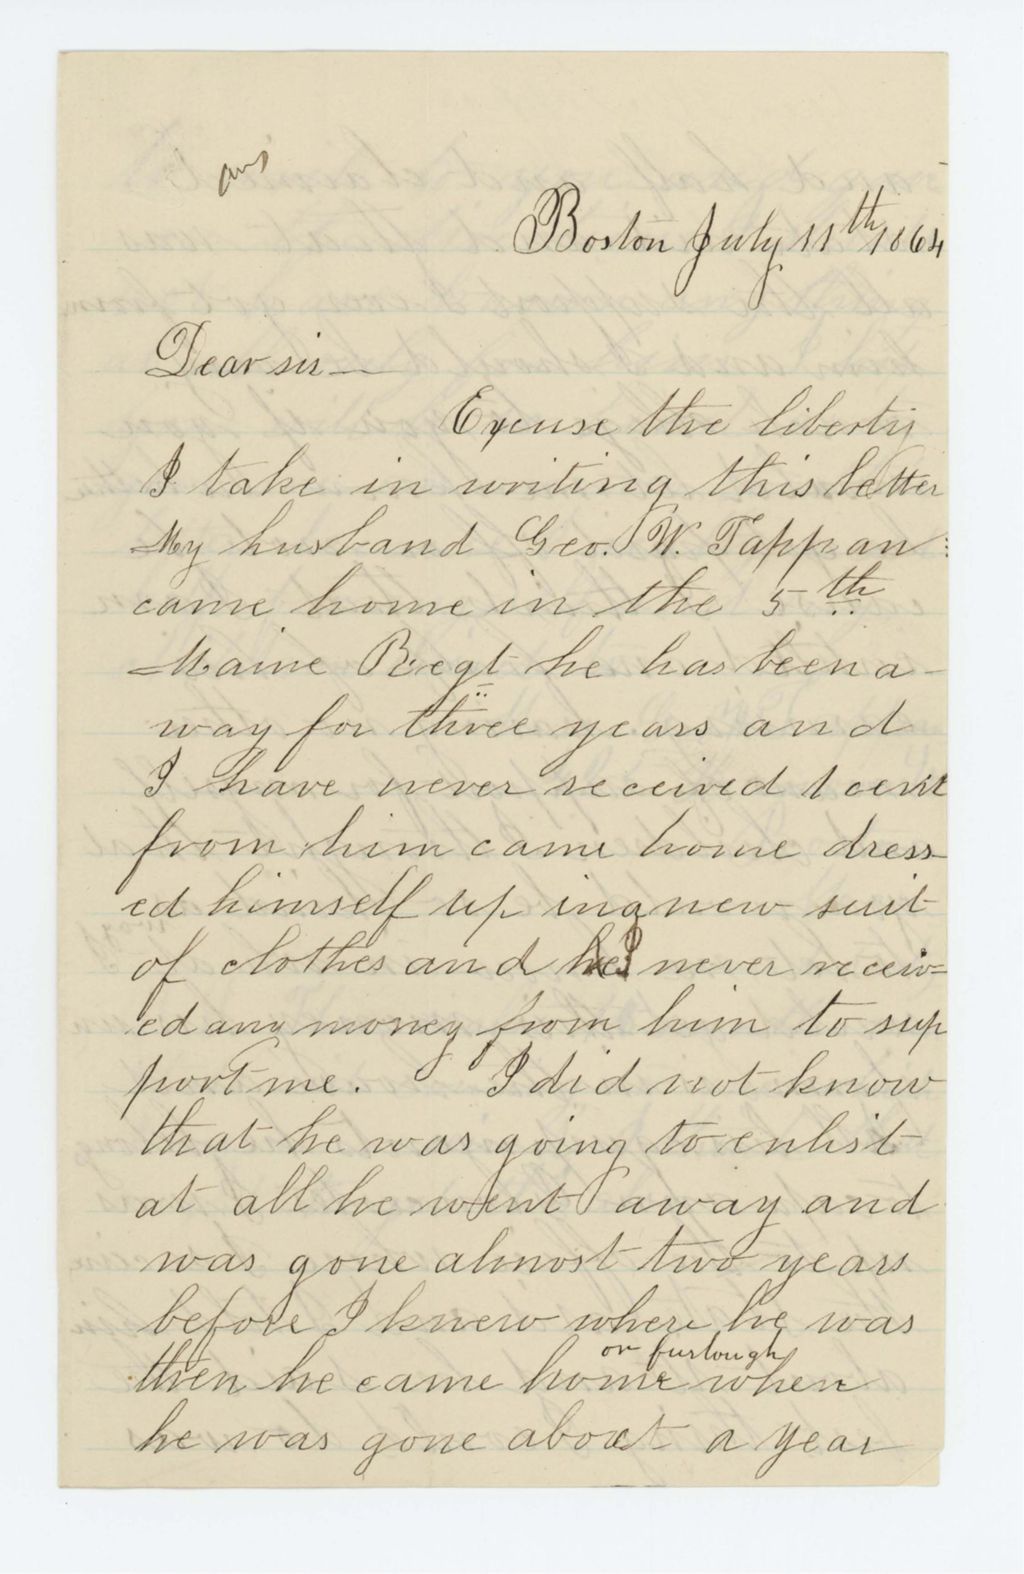 ans
Boston July 11th 1864
Dear sir —
Excuse the liberty
I take in writing this letter
My husband Geo. W. Tappan
came home in the 5th
Maine Regt he has been a-
way for three years and
I have never received 1 cent
from him came home dress
ed himself up in a new suit
of clothes and I never receiv=
ed any money from him to sup
port me. I did not know
that he was going to enlist
at all he went away and
was gone almost two years
before I knew where he was
on furlough
then he came home when
he was gone about a year